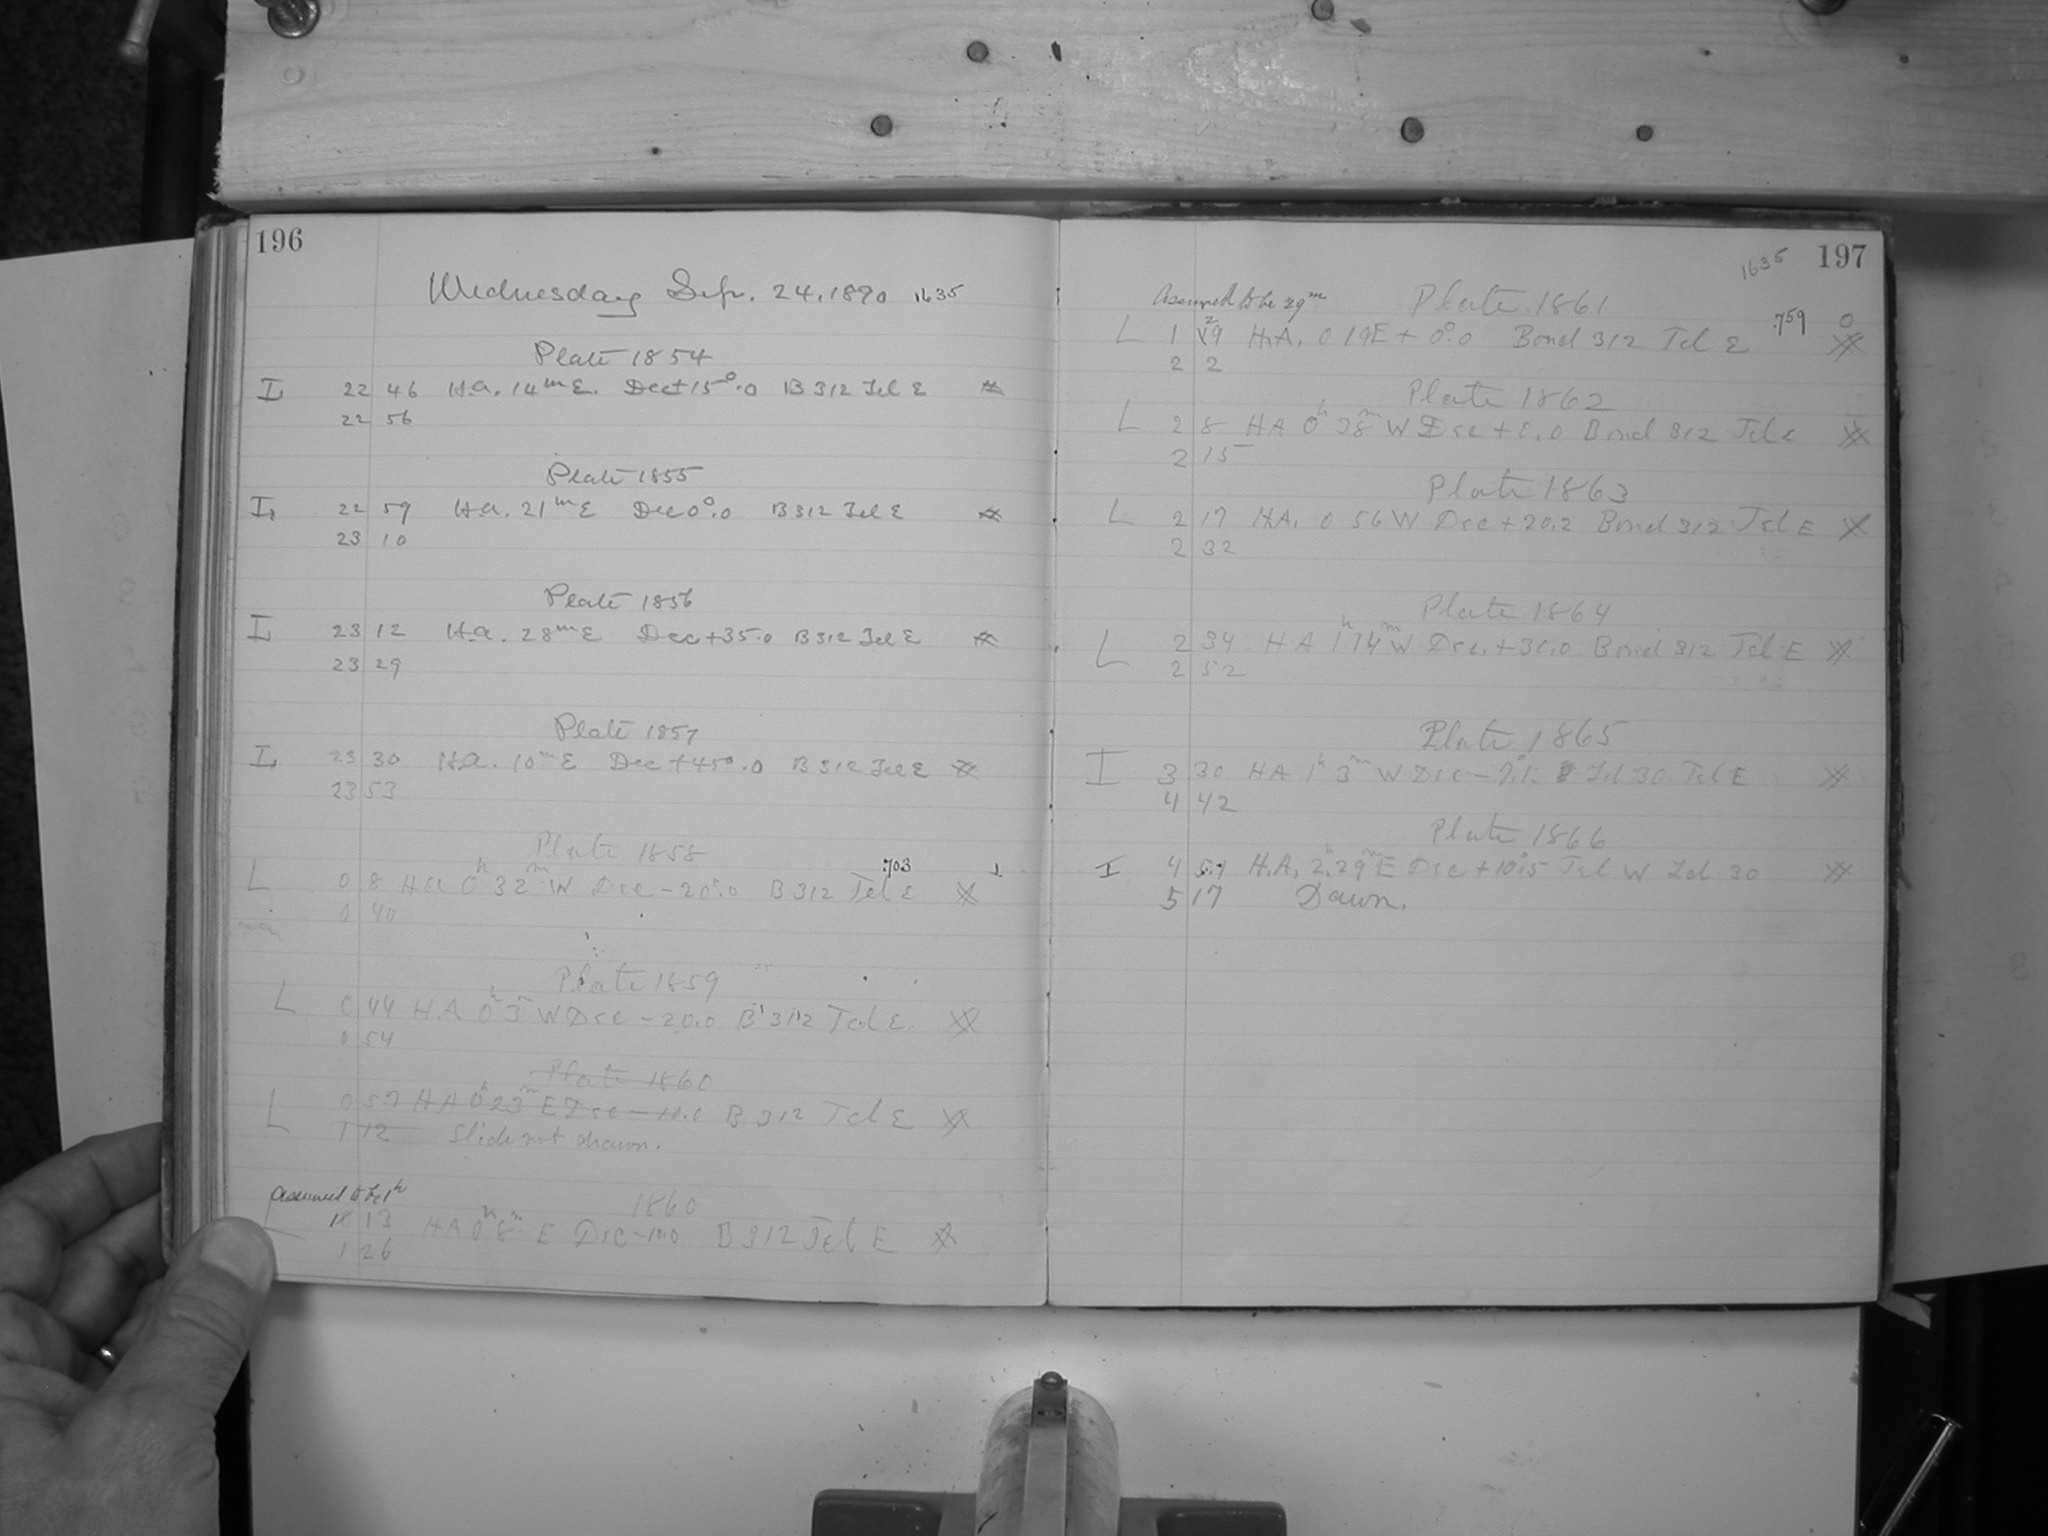 196
Wednesday Sep. 24, 1890 1635
Plate 1854
I 22 46 H.a. 14ᵐ E. Dec +15°.0 B 312 Tel E
22 56
Plate 1855
I, 22 59 H.a. 21ᵐ E Dec 0°.0 B 312 Tel E
23 10
Plate 1856
I 23 12 H.a. 28ᵐ E Dec +35.0 B 312 Tel E
23 29
Plate 1857
I, 23 30 H.a. 10ᵐ E Dec +45°.0 B 312 Tel E
23 53
Plate 1858
.703
L 0 8 H a 0ʰ 32ᵐ W Dec -20°.0 B 312 Tel E
0 40
Plate 1859
L 0 44 H.A 0ʰ 3ᵐ W Dec -20.0 B 312 Tel E.
0 54
Plate 1860
L 0 57 HA 0ʰ 23ᵐ E Dec -10.0 B 312 Tel E
1 12 Slide not drawn.
assumed to be 1ʰ
1860
13 HA 0ʰ 8ᵐ E Dec -10.0 B 312 Tel E
1 26
1635 197
Assumed to be 29ᵐ Plate 1861
.759 0
L 1 29 H.A. 0 19 E + 0°.0 Bond 312 Tel E
2 2
Plate 1862
L 2 8 HA 0ʰ 38ᵐ W Dec + 0.0 Bond 312 Tel E
2 15
Plate 1863
L 2 17 HA. 0 56 W Dec +20.2 Bond 312 Tel E
2 32
Plate 1864
L 2 34 HA 1ʰ 14ᵐ W Dec. +30.0 Bond 312 Tel E
2 52
Plate 1865
I 3 30 HA 1ʰ 3ᵐ W Dec Zd 30 Tel E
4 42
Plate 1866
I 4 H.A. 2ʰ.29ᵐ E Dec +10°.5 Tel W Zd 30
5 17 Dawn.